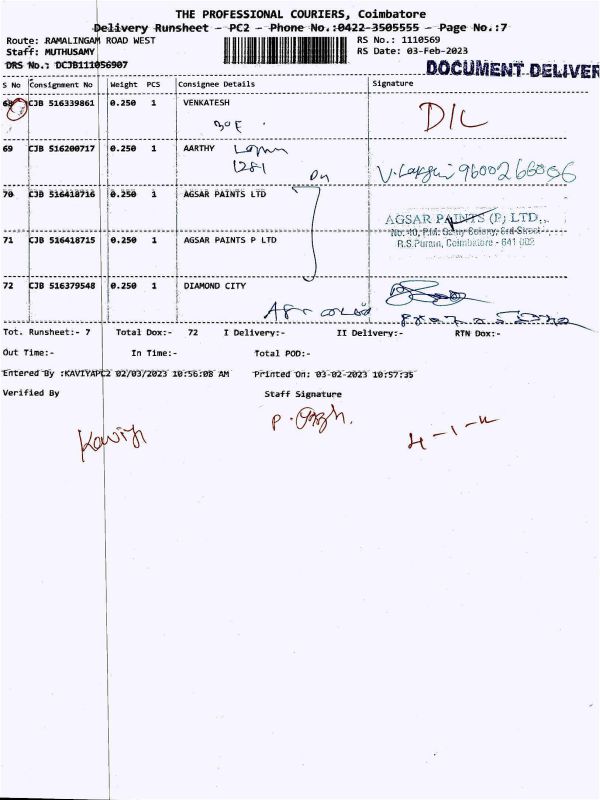 THE PROFESSIONAL COURIERS, Coimbatore
Delivery Runsheet - PC2 - Phone No.:0422-3505555 - Page No.:7
Route: RAMALINGAM ROAD WEST
RS No.: 1110569
Staff: MUTHUSAMY
RS Date: 03-Feb-2023
DRS No.: DCJB111056907
DOCUMENT DELIVER
S No Consignment No Weight PCS Consignee Details Signature
68 CJB 516339861 0.250 1 VENKATESH
D/L
69 CJB 516200717 0.250 1 AARTHY
1281
9600266056
70 CJB 516418716 0.250 1 AGSAR PAINTS LTD
AGSAR PAINTS (P) LTD.,
No: 40, P.M. Samy Colony, 3rd Street
R.S.Puram, Coimbatore - 641 002
71 CJB 516418715 0.250 1 AGSAR PAINTS P LTD
72 CJB 516379548 0.250 1 DIAMOND CITY
Tot. Runsheet:- 7 Total Dox:- 72 I Delivery:- II Delivery:- RTN Dox:-
Out Time:- In Time:- Total POD:-
Entered By :KAVIYAPC2 02/03/2023 10:56:08 AM Printed On: 03-02-2023 10:57:35
Verified By Staff Signature
Kaviya